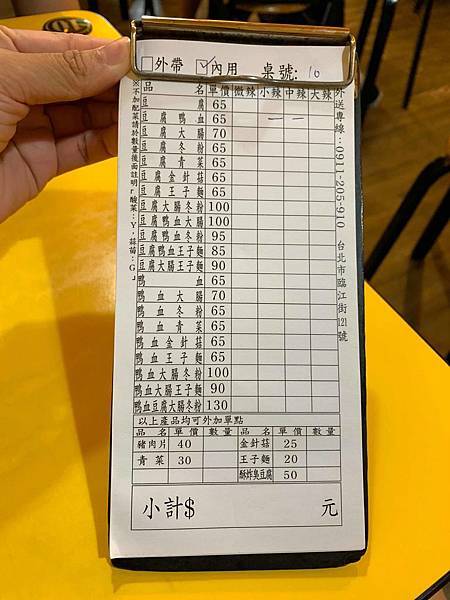 □外帶 ☑內用 桌號: 10
品名 單價 微辣 小辣 中辣 大辣
豆腐 65
豆腐鴨血 65 一 一
豆腐大腸 70
豆腐冬粉 65
豆腐青菜 65
豆腐金針菇 65
豆腐王子麵 65
豆腐大腸冬粉 100
豆腐鴨血大腸 100
豆腐鴨血冬粉 95
豆腐鴨血王子麵 85
豆腐大腸王子麵 90
鴨血 65
鴨血大腸 70
鴨血冬粉 65
鴨血青菜 65
鴨血金針菇 65
鴨血王子麵 65
鴨血大腸冬粉 100
鴨血大腸王子麵 90
鴨血豆腐大腸冬粉 130
以上產品均可外加單點
品名 單價 數量 品名 單價 數量
豬肉片 40 金針菇 25
青菜 30 王子麵 20
酥炸臭豆腐 50
小計$ 元
※不加配菜請於數量後面註明「酸菜:Y,蒜苗:G」
外送專線:0911-205-910 台北市臨江街121號